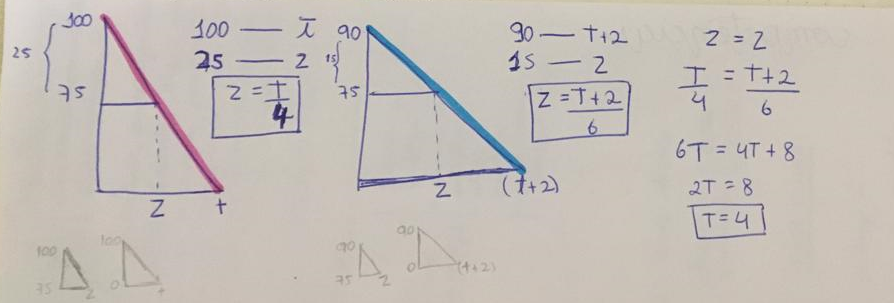 100
25
75
Z
t
100 — T
25 — Z
Z = T/4
90
15
75
Z
(t+2)
90 — T+2
15 — Z
Z = T+2/6
Z = Z
T/4 = T+2/6
6T = 4T + 8
2T = 8
T = 4
100
75
Z
100
0
t
90
75
Z
90
0
(t+2)